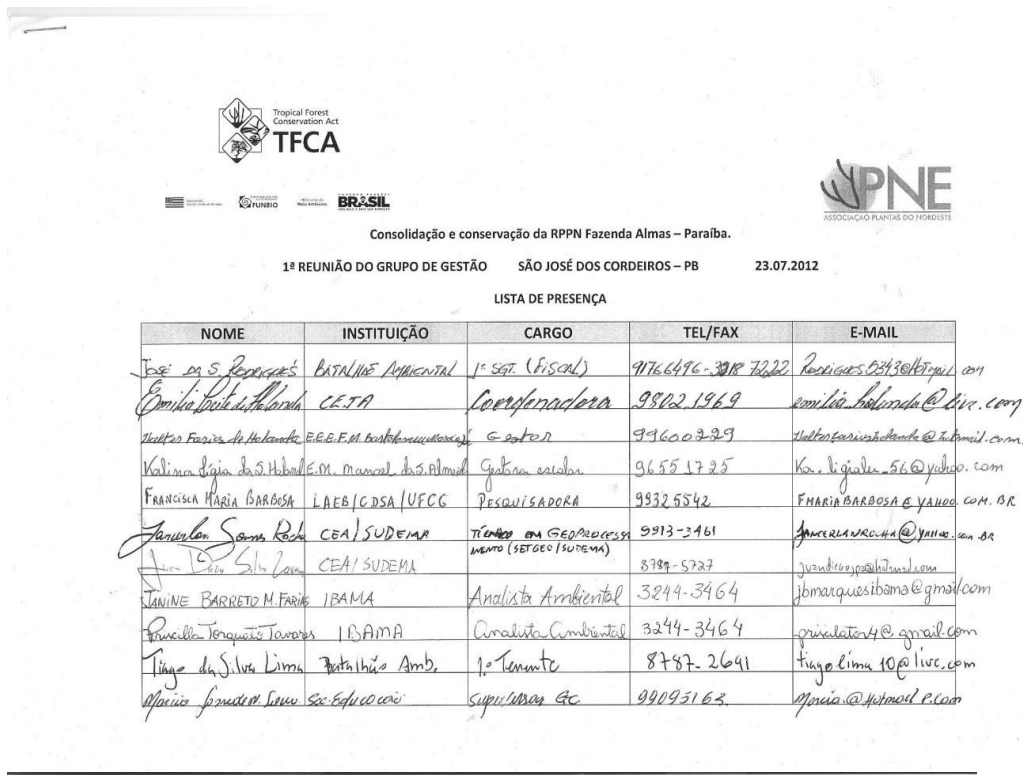 Tropical Forest
Conservation Act
TFCA
FUNBIO
BRASIL
PNE
ASSOCIAÇÃO PLANTAS DO NORDESTE
Consolidação e conservação da RPPN Fazenda Almas – Paraíba.
1ª REUNIÃO DO GRUPO DE GESTÃO SÃO JOSÉ DOS CORDEIROS – PB 23.07.2012
LISTA DE PRESENÇA
NOME INSTITUIÇÃO CARGO TEL/FAX E-MAIL
José da S. Rodrigues BATALHÃO AMBIENTAL 1º SGT. (FISCAL) 91766496-3218 7222
Emilia Leite de Holanda CEJA Coordenadora 9802.1969 emilia_holanda@live.com
Walter Farias de Holanda E.E.E.F.M. Gestor 99600229
Kalina Ligia da S. E.M. Manoel da S. Almeida Gestora escolar 96551725
FRANCISCA MARIA BARBOSA LAEB/CDSA/UFCG PESQUISADORA 99325542 FMARIABARBOSA@YAHOO.COM.BR
CEA/SUDEMA TÉCNICO EM GEOPROCESSAMENTO (SETGEO/SUDEMA) 9913-3461 JANCERLANROCHA@YAHOO.COM.BR
CEA/SUDEMA 8787-5727
JANINE BARRETO M. FARIAS IBAMA Analista Ambiental 3244-3464 jbmarquesibama@gmail.com
Priscilla Torquato Tavares IBAMA Analista Ambiental 3244-3464 priscilator4@gmail.com
Tiago da Silva Lima Batalhão Amb. 1º Tenente 8787-2641 tiagolima10@live.com
Sec. Educação GC 99095163